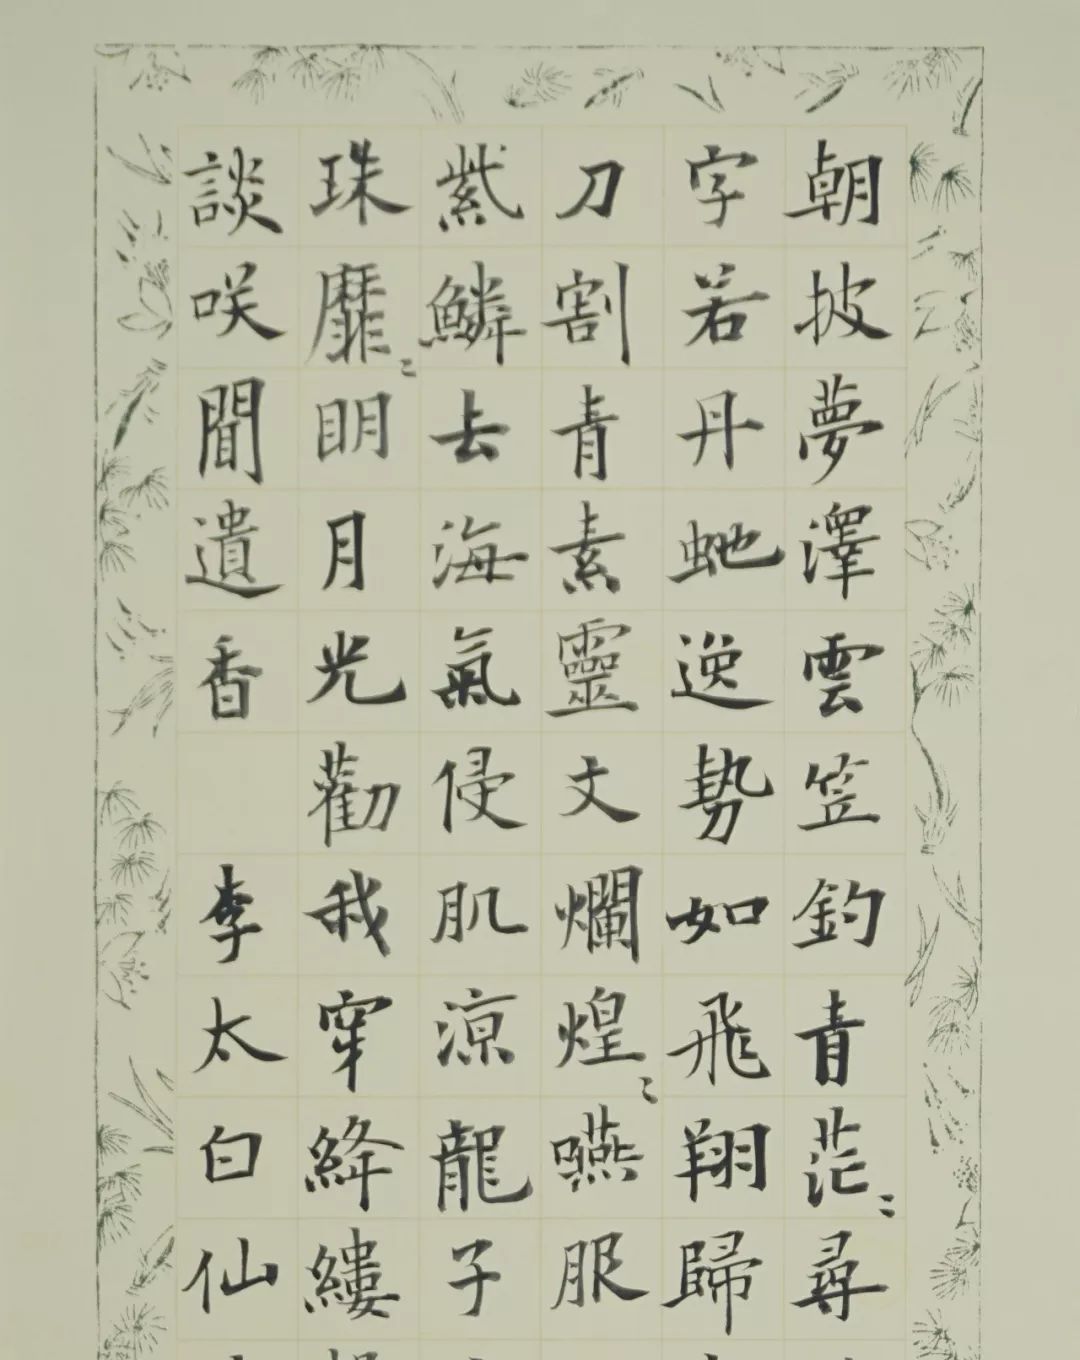 朝披夢澤雲笠釣青茫〻尋
字若丹虵逸勢如飛翔歸
刀割青素靈文爛煌〻嚥服
紫鱗去海氣侵肌涼龍子
珠靡〻眀月光勸我穿絳縷
談咲聞遺香 李太白仙